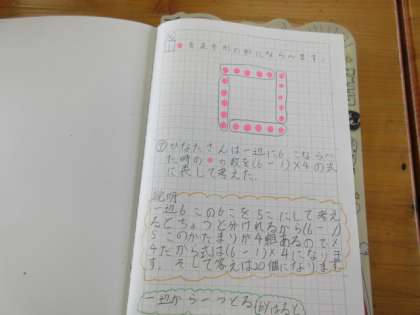 ●を正方形の形にならべます。
① ひなたさんは一辺に6こならべ
た時の●の数を(6-1)×4の式
に表して考えた。
説明
一辺6この6こを5こにして考え
るとちょうど分けれるから(6-1)
5このかたまりが4組あるので×
4だから式は(6-1)×4になりま
す。そして答えは20個になります
一辺から一つとる